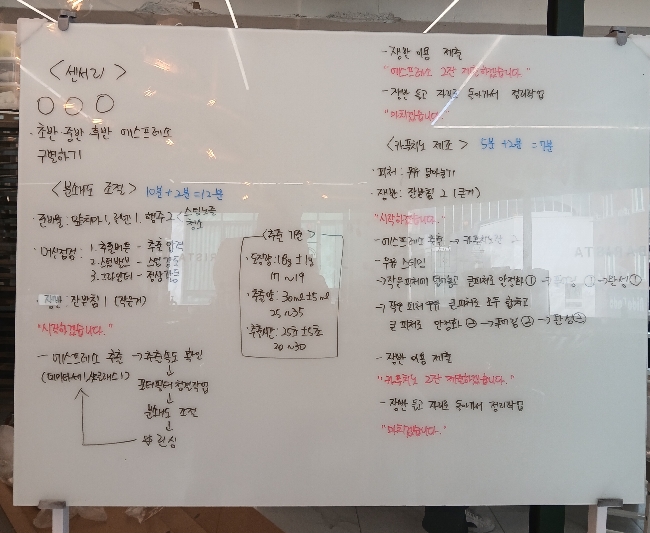 <센서리>
· 초반 중반 후반 에스프레소
구별하기
<분쇄도 조절> 10분+2분=12분
준비물: 앞치마1, 린넨1, 행주2 <스팀노즐
청소
· 머신점검: 1. 추출버튼 - 추출압력
2. 스팀밸브 - 스팀압력
3. 그라인더 - 정상작동
· 쟁반: 잔받침 1 (작은거)
"시작하겠습니다."
- 에스프레소 추출 → 추출속도 확인
↓
포터필터 청결작업
↓
분쇄도 조절
↓
린싱
<추출 기준>
· 도징량: 18g ± 1g
17 ~ 19
· 추출양: 30ml ± 5ml
25 ~ 35
· 추출시간: 25초 ± 5초
20 ~ 30
- 쟁반 이용 제출
"에스프레소 2잔 제출하겠습니다."
- 쟁반 들고 자리로 돌아가서 정리작업
"마치겠습니다."
<카푸치노 제조> 5분+2분=7분
· 피처: 우유 담아놓기
· 쟁반: 잔받침 2 (큰거)
"시작하겠습니다."
- 에스프레소 추출 → 카푸치노잔 2
- 우유 스티밍
→ 작은피처에 덜어놓고 큰피처로 안정화① → 푸어링① → 완성①
→ 작은 피처 우유 큰피처로 모두 합치고
큰 피처로 안정화② → 푸어링② → 완성②
- 쟁반 이용 제출
"카푸치노 2잔 제출하겠습니다."
- 쟁반 들고 자리로 돌아가서 정리작업
"마치겠습니다."